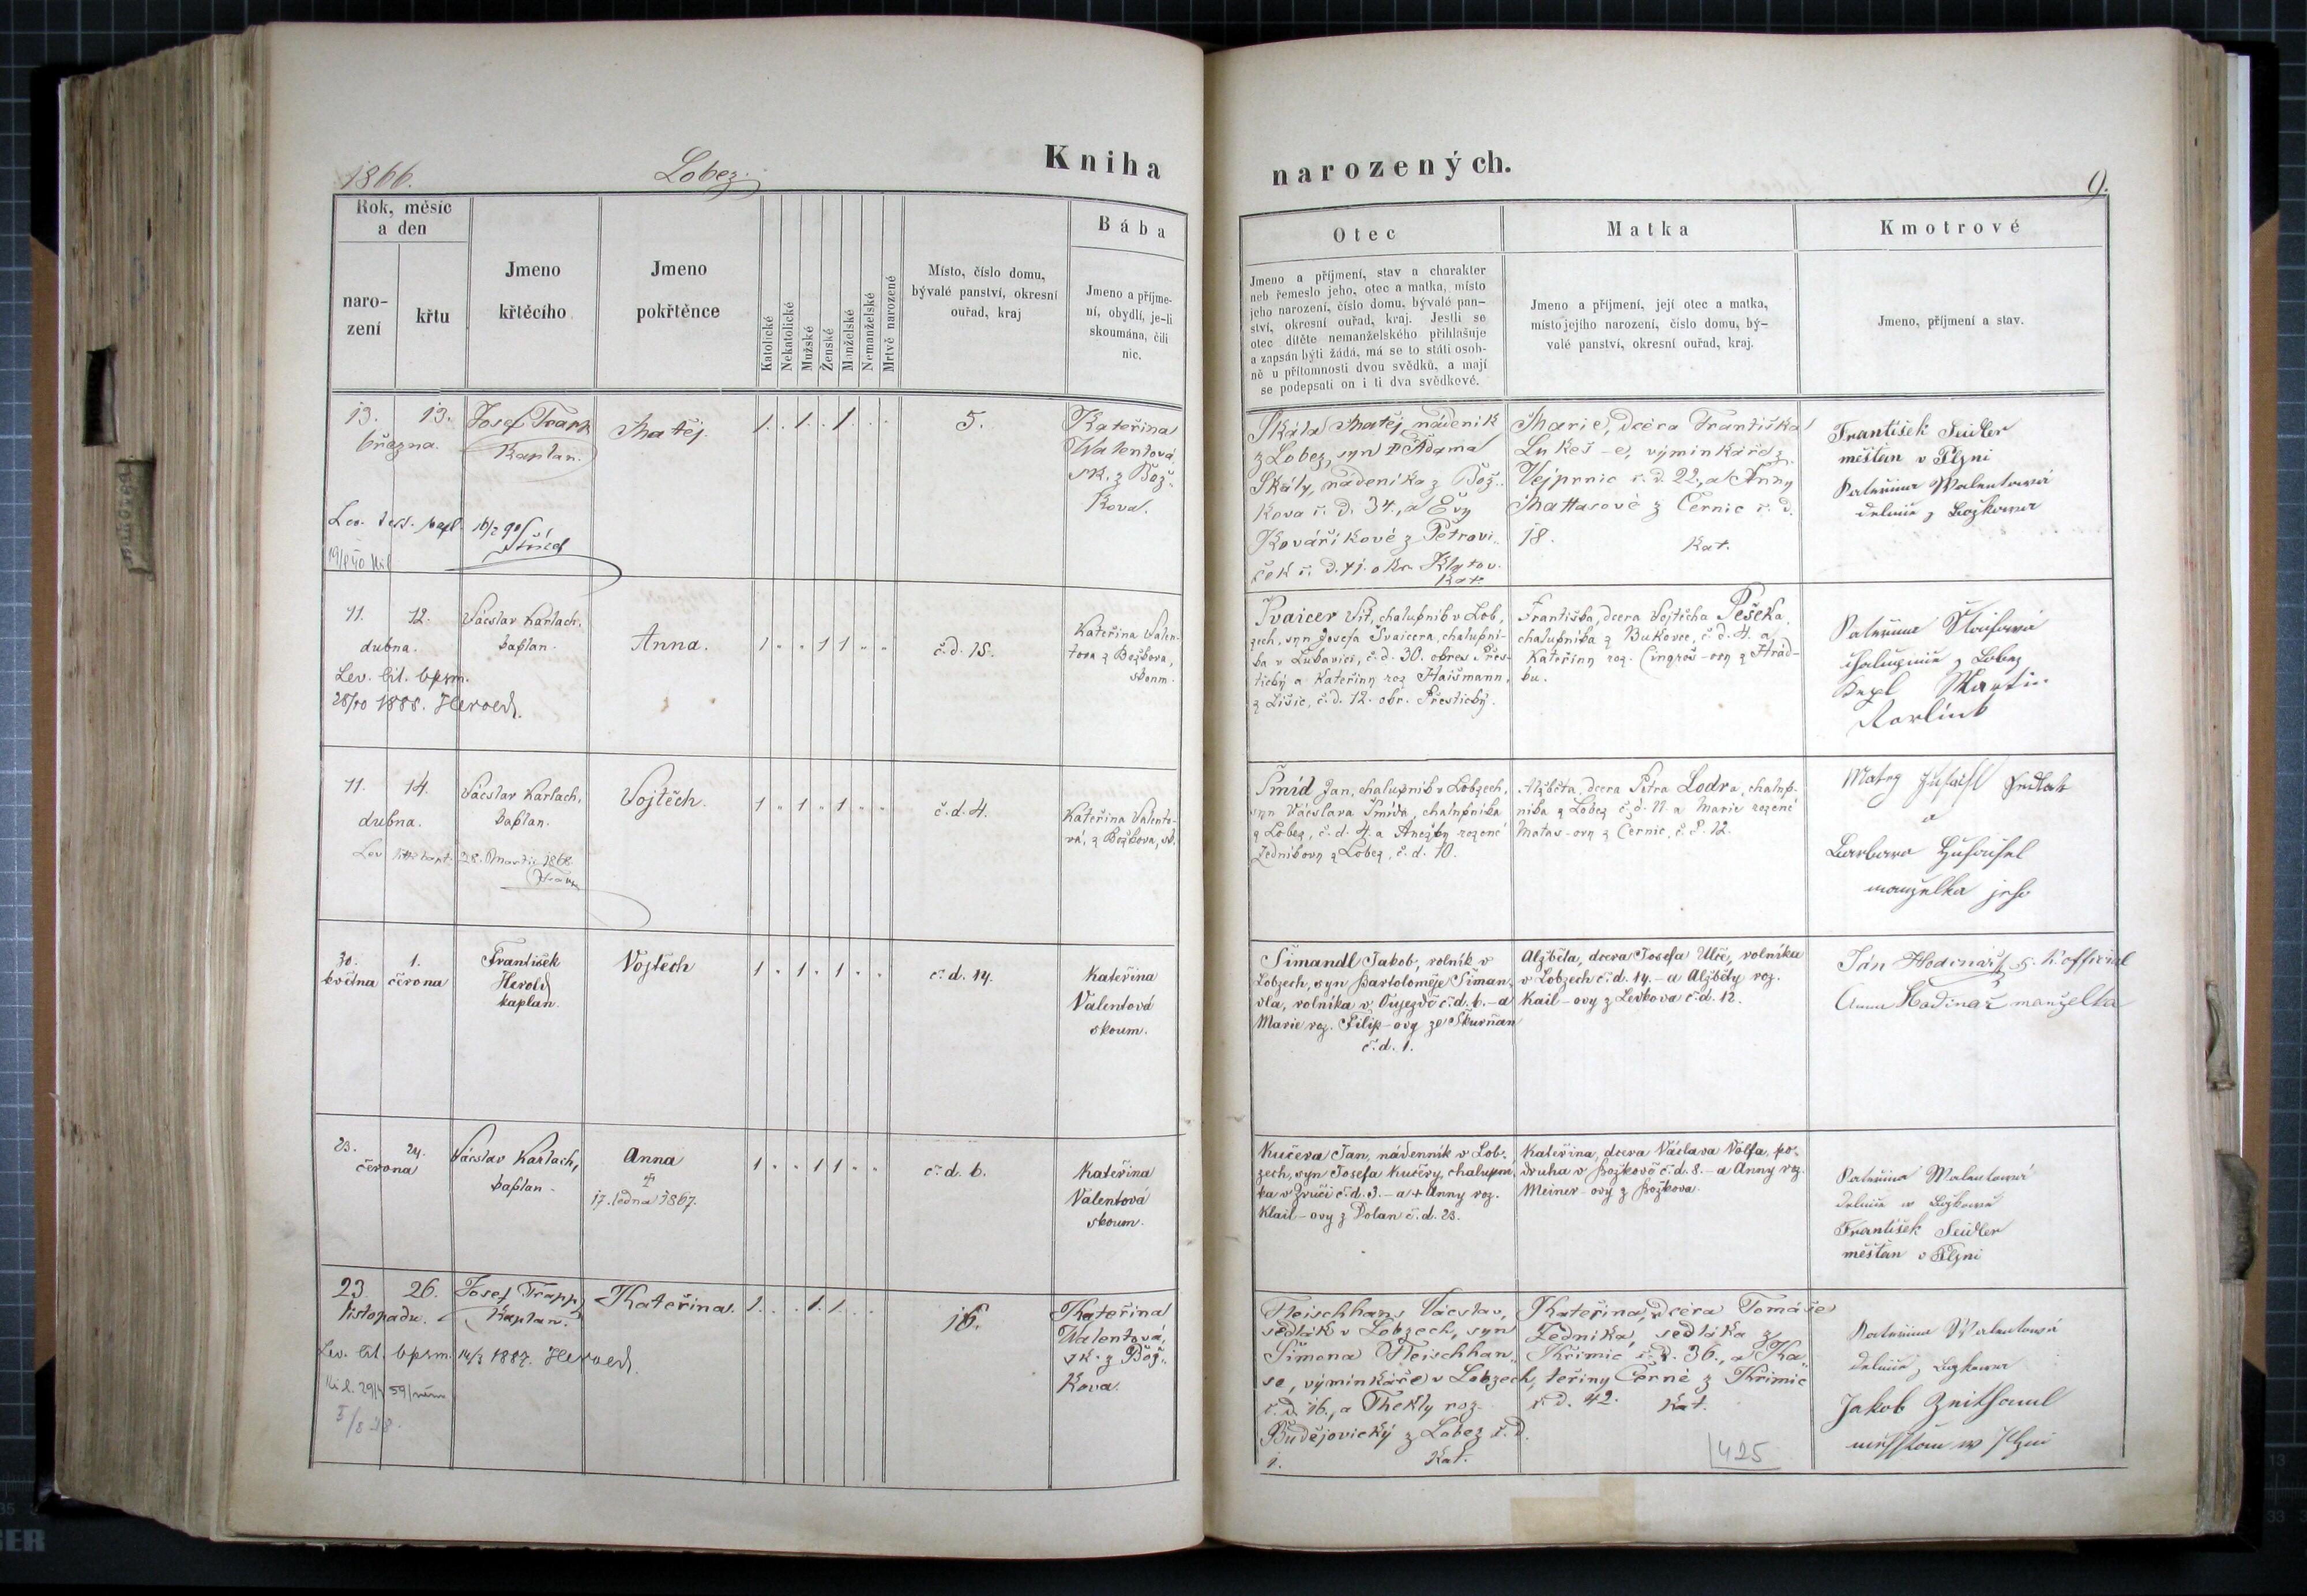 1866.
Lobez.
Kniha
narozených.
9.
Rok, měsíc
a den
naro-
zení
křtu
Jmeno
křtěcího
Jmeno
pokřtěnce
Katolické
Nekatolické
Mužské
Ženské
Manželské
Nemanželské
Mrtvě narozené
Místo, číslo domu,
bývalé panství, okresní
ouřad, kraj
Bába
Jmeno a příjme-
ní, obydlí, je-li
skoumána, čili
nic.
Otec
Jmeno a příjmení, stav a charakter
neb řemeslo jeho, otec a matka, místo
jeho narození, číslo domu, bývalé pan-
ství, okresní ouřad, kraj. Jestli se
otec dítěte nemanželského přihlašuje
a zapsán býti žádá, má se to státi osob-
ně u přítomnosti dvou svědků, a mají
se podepsati on i ti dva svědkové.
Matka
Jmeno a příjmení, její otec a matka,
místo jejího narození, číslo domu, bý-
valé panství, okresní ouřad, kraj.
Kmotrové
Jmeno, příjmení a stav.
13. 13.
března.
Josef Trapp
Kaplan.
Matěj.
1. 1. 1.
5.
Kateřina
Walentová
sk. z Bož-
kova.
Skála Matěj nádeník
z Lobez, syn † Adama
Skály, nádeníka z Bož-
kova č. d. 34., a Evy
Kovaříkové z Petrovi-
ček č. d. 41. okr. Klatov.
Kat.
Marie, dcera Františka
Lukeš-e, výminkáře z
Vejprnic č. d. 22, a Anny
Mattasové z Černic č. d.
18.
Kat.
František Seidler
měštan v Plzni
Kateřina Walentowá
z Božkowa
11. 12.
dubna.
Lev. bil. bpsm.
28/10 1888. Herold.
Václav Karlach,
kaplan.
Anna.
1 1 1
č. d. 15.
Kateřina Valen-
tova z Božkova,
skoum.
Švaicer Vít, chalupník v Lob-
zech, syn Josefa Švaicera, chalupní-
ka v Lukavici, č. d. 30. okres Přes-
tický a Kateřiny roz. Haišmann.
z Lišic, č. d. 12. okr. Přestický.
Františka, dcera Vojtěcha Pešeka,
chalupníka z Bukovce, č. d. 4. a
Kateřiny roz. Cingroš-ovy z Hrád-
ku.
Kateřina
z Lobez
Martin
11. 14.
dubna.
Václav Karlach,
kaplan.
28. Martii 1868.
Vojtěch.
1 1 1
č. d. 4.
Kateřina Valento-
vá, z Božkova, sk.
Šmíd Jan, chalupník v Lobzech,
syn Václava Šmída, chalupníka
z Lobez, č. d. 4. a Anežky rozené
Zedníkovy z Lobez, č. d. 10.
Alžběta, dcera Petra Lodra, chalup-
níka z Lobez č. d. 11 a Marie rozené
Matas-ovy z Černic, č. d. 12.
Barbara
manželka jeho
30. 1.
května června
František
Herold
kaplan.
Vojtěch
1 1 1
č. d. 14.
Kateřina
Valentová
skoum.
Šimandl Jakob, rolník v
Lobzech, syn Bartoloměje Šiman-
dla, rolníka v Oujezdě č. d. 6. - a
Marie roz. Filip-ovy ze Škurňan
č. d. 1.
Alžběta, dcera Josefa Ulče, rolníka
v Lobzech č. d. 14. - a Alžběty roz.
Kail-ovy z Letkova č. d. 12.
Ján Hodinař
Anna Hodinař manželka
23. 24.
června
Václav Karlach,
kaplan.
Anna
†
17. ledna 1867.
1 1 1
č. d. 6.
Kateřina
Valentová
skoum.
Kučera Jan, nádenník v Lob-
zech, syn Josefa Kučery, chalupní-
ka v Zruči č. d. 3. - a † Anny roz.
Klail-ovy z Dolan č. d. 23.
Kateřina, dcera Václava Volfa, po-
druha v Božkově č. d. 8. - a Anny roz.
Meiner-ovy z Božkova.
Kateřina Walentowá
František Seidler
měštan v Plzni
23. 26.
listopadu.
Lev. bil. bpsm. 14/3 1887. Herold.
Josef Trapp
Kaplan.
Kateřina.
1. 1. 1.
16.
Kateřina
Walentová,
sk. z Bož-
kova.
Fleischhans Václav,
sedlák v Lobzech, syn
Šimona Fleischhan-
se, výminkáře v Lobzech,
č. d. 16., a Thekly roz.
Budějovický z Lobez č. d.
1. Kat.
Kateřina, dcera Tomáše
Zedníka, sedláka z
Křimic č. d. 36., a Ka-
teřiny Černé z Křimic
č. d. 42. Kat.
425
Kateřina Walentowá
z Božkowa
Jakob